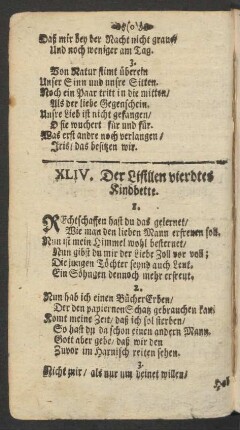 Daß mir bey der Nacht nicht grauet/
Und noch weniger am Tag.
3.
Von Natur stimt überein
Unser Sinn und unsre Sitten.
Noch ein Paar tritt in die mitten/
Als der liebe Gegenschein.
Unsre Lieb ist nicht gefangen/
O sie wuchert für und für.
Was erst andre noch verlangen/
Iris/ das besitzen wir.
XLIV. Der Lisilien vierdtes
Kindbette.
1.
Rechtschaffen hast du das gelernet/
Wie man den lieben Mann erfreuen soll.
Nun ist mein Himmel wohl besternet/
Nun gibst du mir der Liebe Zoll vor voll;
Die jungen Töchter seynd auch Leut.
Ein Söhngen dennoch mehr erfreut.
2.
Nun hab ich einen BücherErben/
Der den papiernen Schatz gebrauchen kan/
Komt meine Zeit/ daß ich sol sterben/
So hast du da schon einen andern Mann.
Gott aber gebe/ daß wir den
Zuvor im Harnisch reiten sehen.
3.
Nicht mir/ als nur um deinet willen/